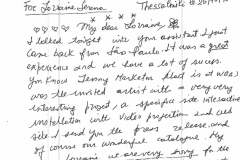 For Lorraine Serena
Thessaloniki
My dear Lorraine
I talked tonight with you assistant I just
came back from São Paulo. It was a great
experience and we have a lot of success.
You know Jenny Marketou that is it was
was the invited artist with a very very
interesting project, a specific site interactive
installation with video projection and web
site I send you the press release and
of course our wonderful catalogue. My
we are very sorry for the